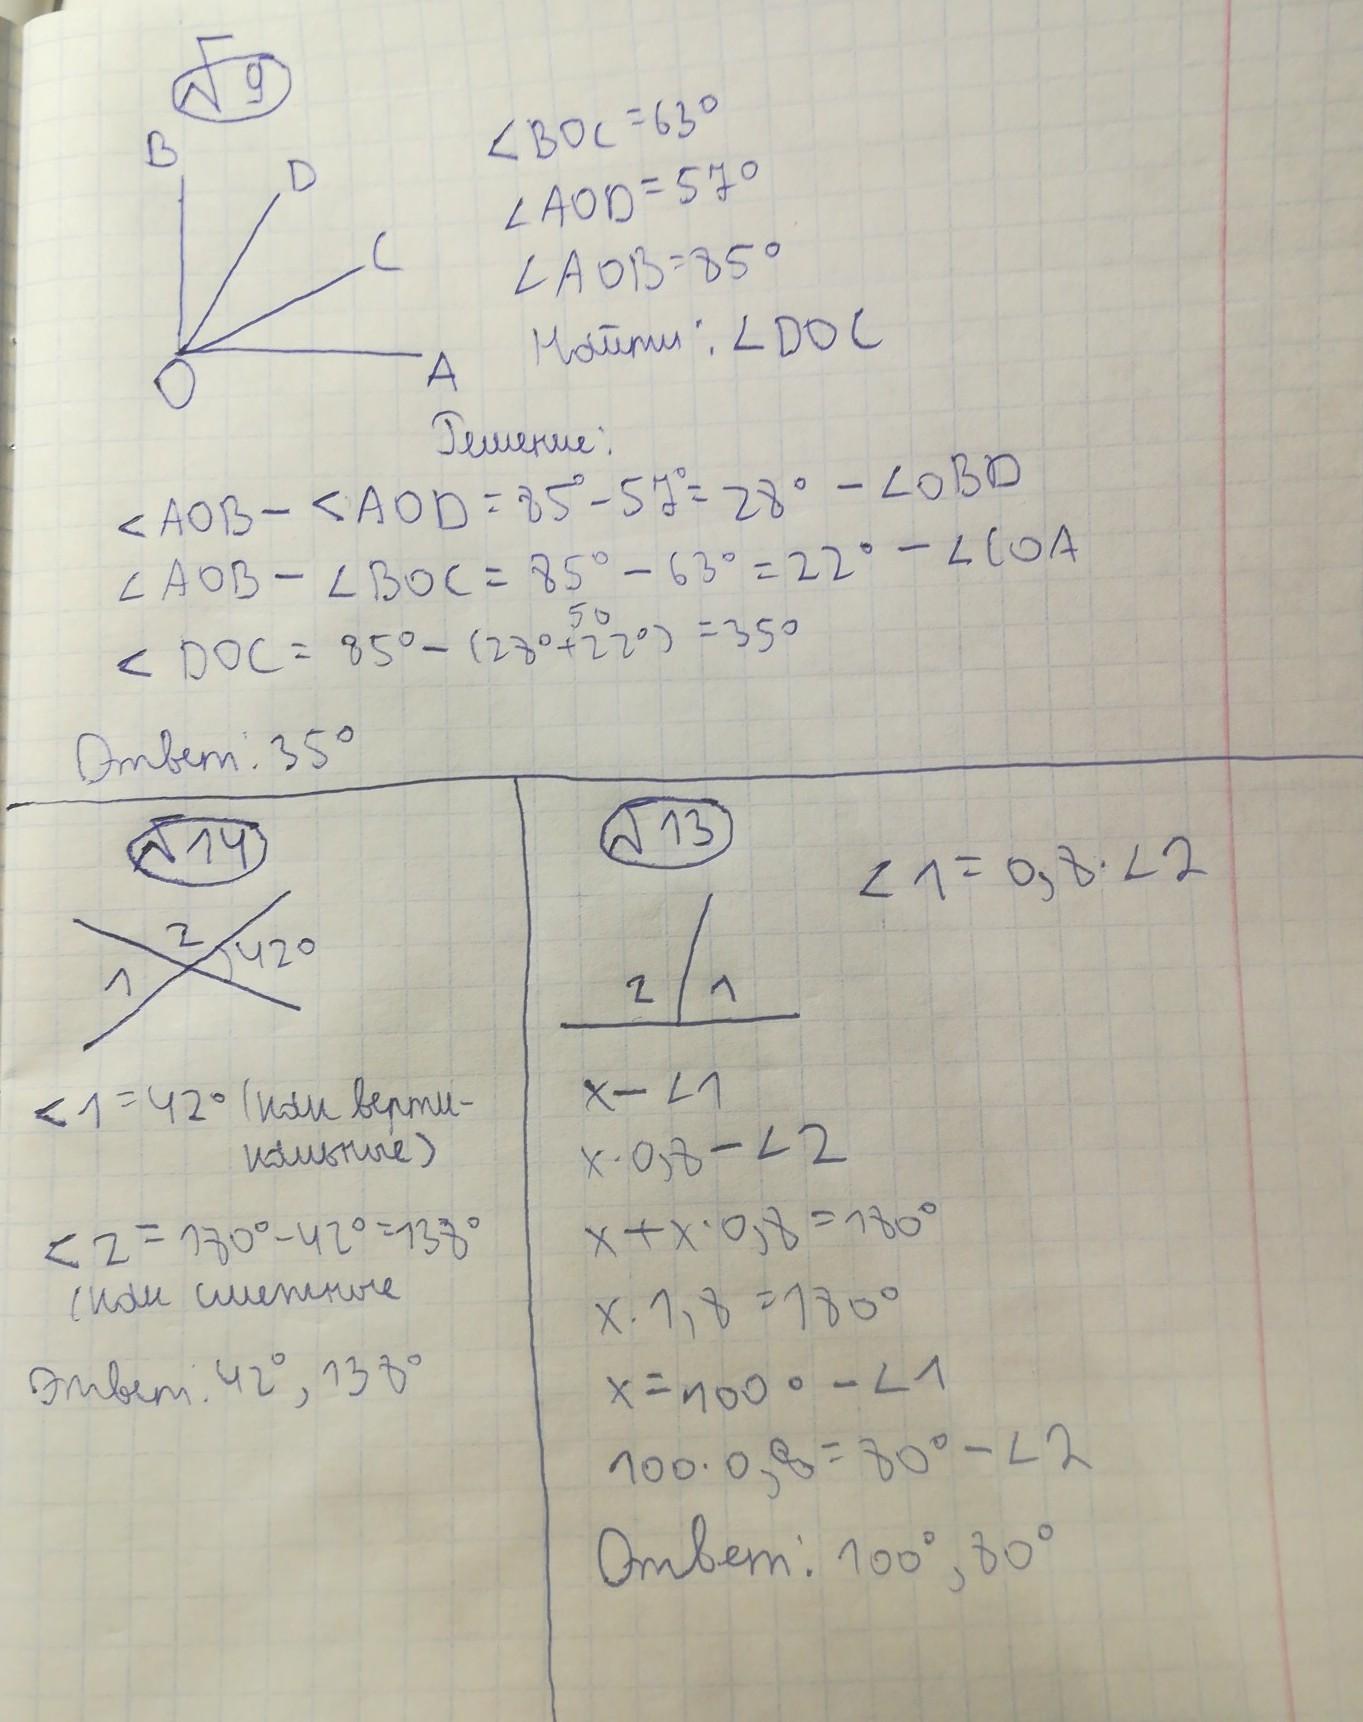 №9
B
D
C
O
A
∠BOC=63°
∠AOD=57°
∠AOB=85°
Найти: ∠DOC
Решение:
∠AOB - ∠AOD = 85°-57°=28° - ∠OBD
∠AOB - ∠BOC = 85° - 63° = 22° - ∠COA
50
∠DOC = 85° - (28°+22°) = 35°
Ответ: 35°
№14
2
1
42°
∠1 = 42° (как верти-
кальные)
∠2 = 180°-42°=138°
(как смежные
Ответ: 42°, 138°
№13
∠1 = 0,8·∠2
2
1
x - ∠1
x·0,8 - ∠2
x + x·0,8 = 180°
x·1,8 = 180°
x = 100° - ∠1
100·0,8 = 80° - ∠2
Ответ: 100°, 80°